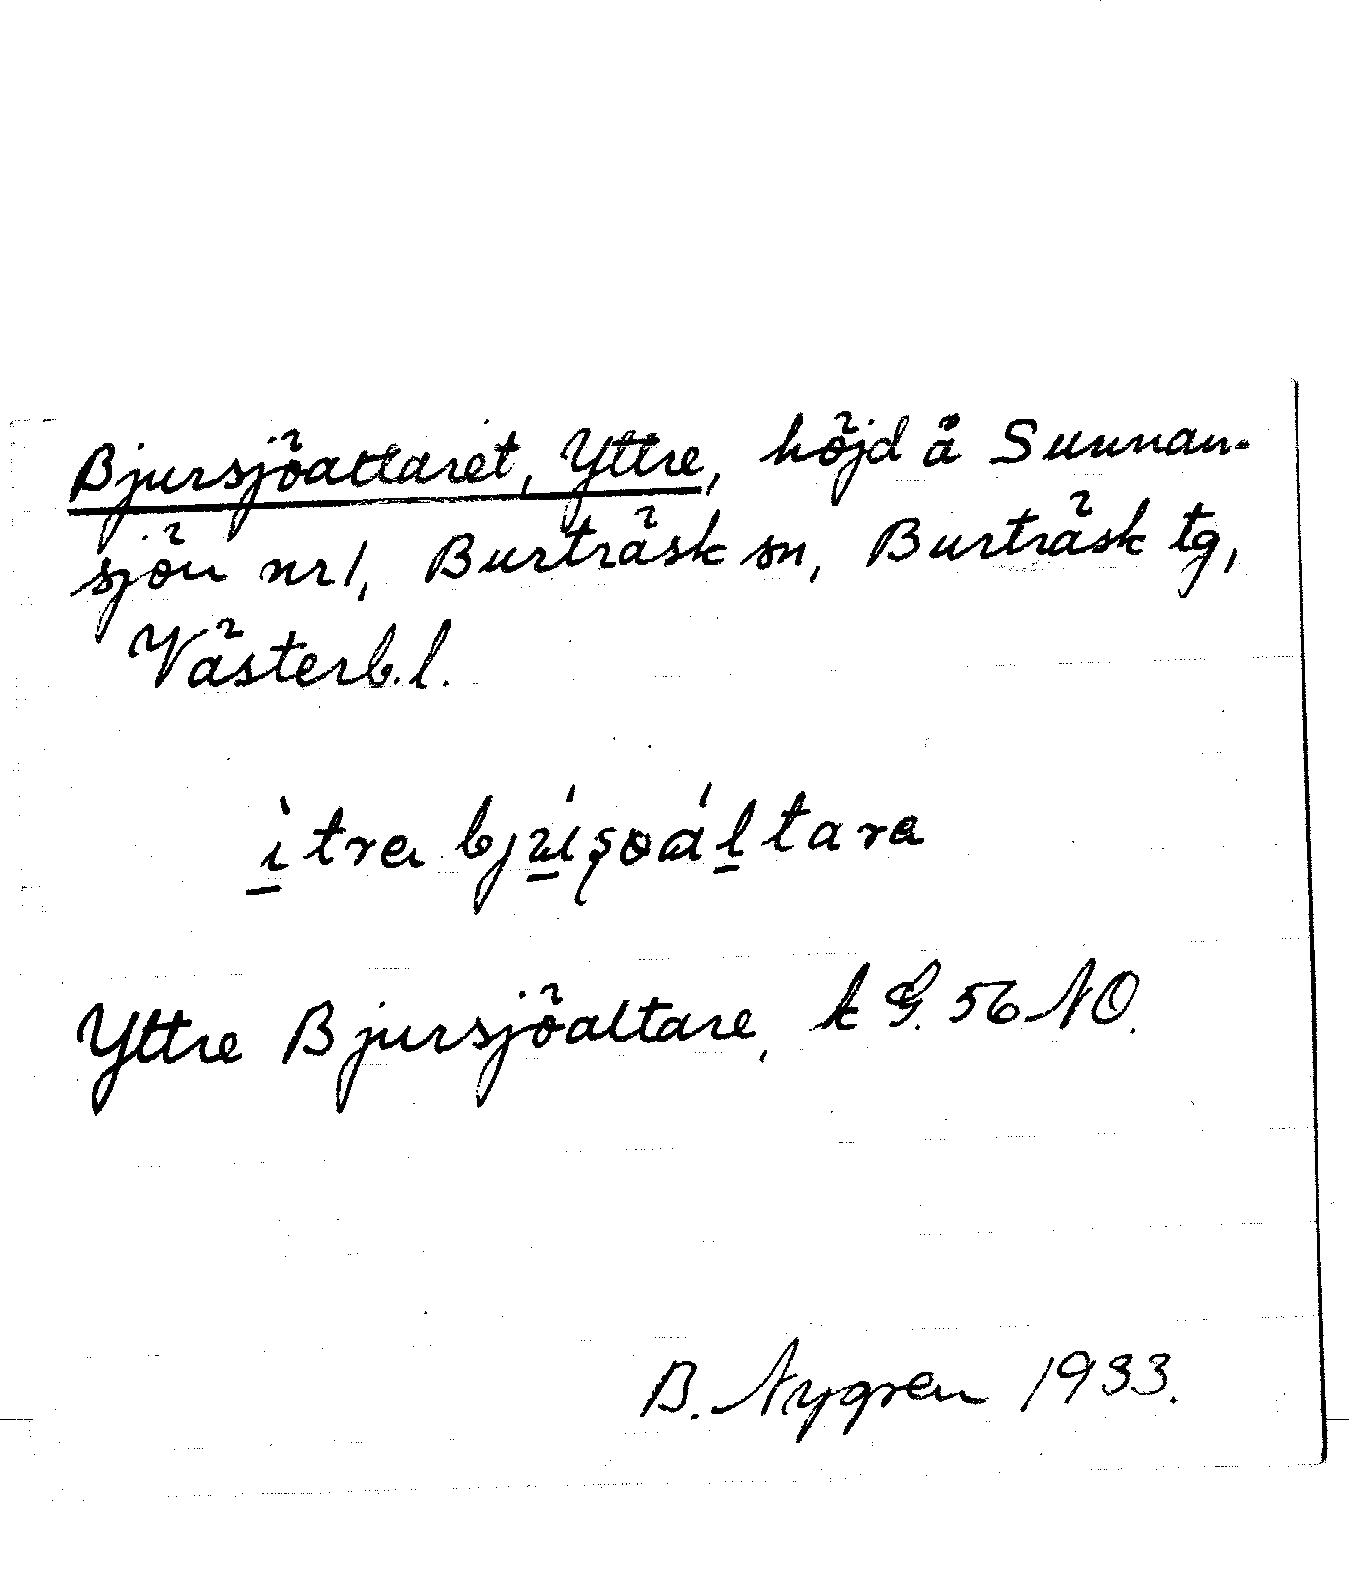 Bjursjöaltaret, Yttre, höjd å Sunnan-
sjön nr 1, Burträsk sn, Burträsk tg,
Västerb. l.
ı̱̀tra bjú̱ʂoáḻtara
Yttre Bjursjöaltare, k G. 56 NO.
B. Nygren 1933.